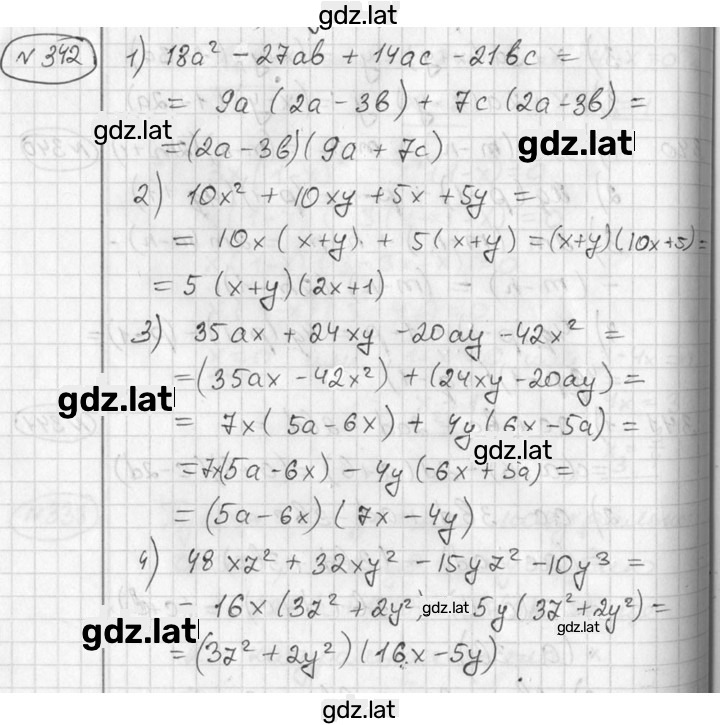 gdz.lat
N 342 1) 18a² - 27ab + 14ac - 21bc =
= 9a (2a - 3b) + 7c (2a - 3b) =
gdz.lat
= (2a - 3b) (9a + 7c) gdz.lat
2) 10x² + 10xy + 5x + 5y =
= 10x (x+y) + 5(x+y) = (x+y)(10x+5) =
= 5 (x+y)(2x+1)
3) 35ax + 24xy - 20ay - 42x² =
= (35ax - 42x²) + (24xy - 20ay) =
gdz.lat
= 7x( 5a - 6x) + 4y(6x - 5a) =
gdz.lat
= 7x(5a - 6x) - 4y (-6x + 5a) =
= (5a - 6x) (7x - 4y)
4) 48xz² + 32xy² - 15yz² - 10y³ =
- 16x (3z² + 2y²) gdz.lat 5y (3z² + 2y²) =
gdz.lat gdz.lat
= (3z² + 2y²) (16x - 5y)
gdz.lat